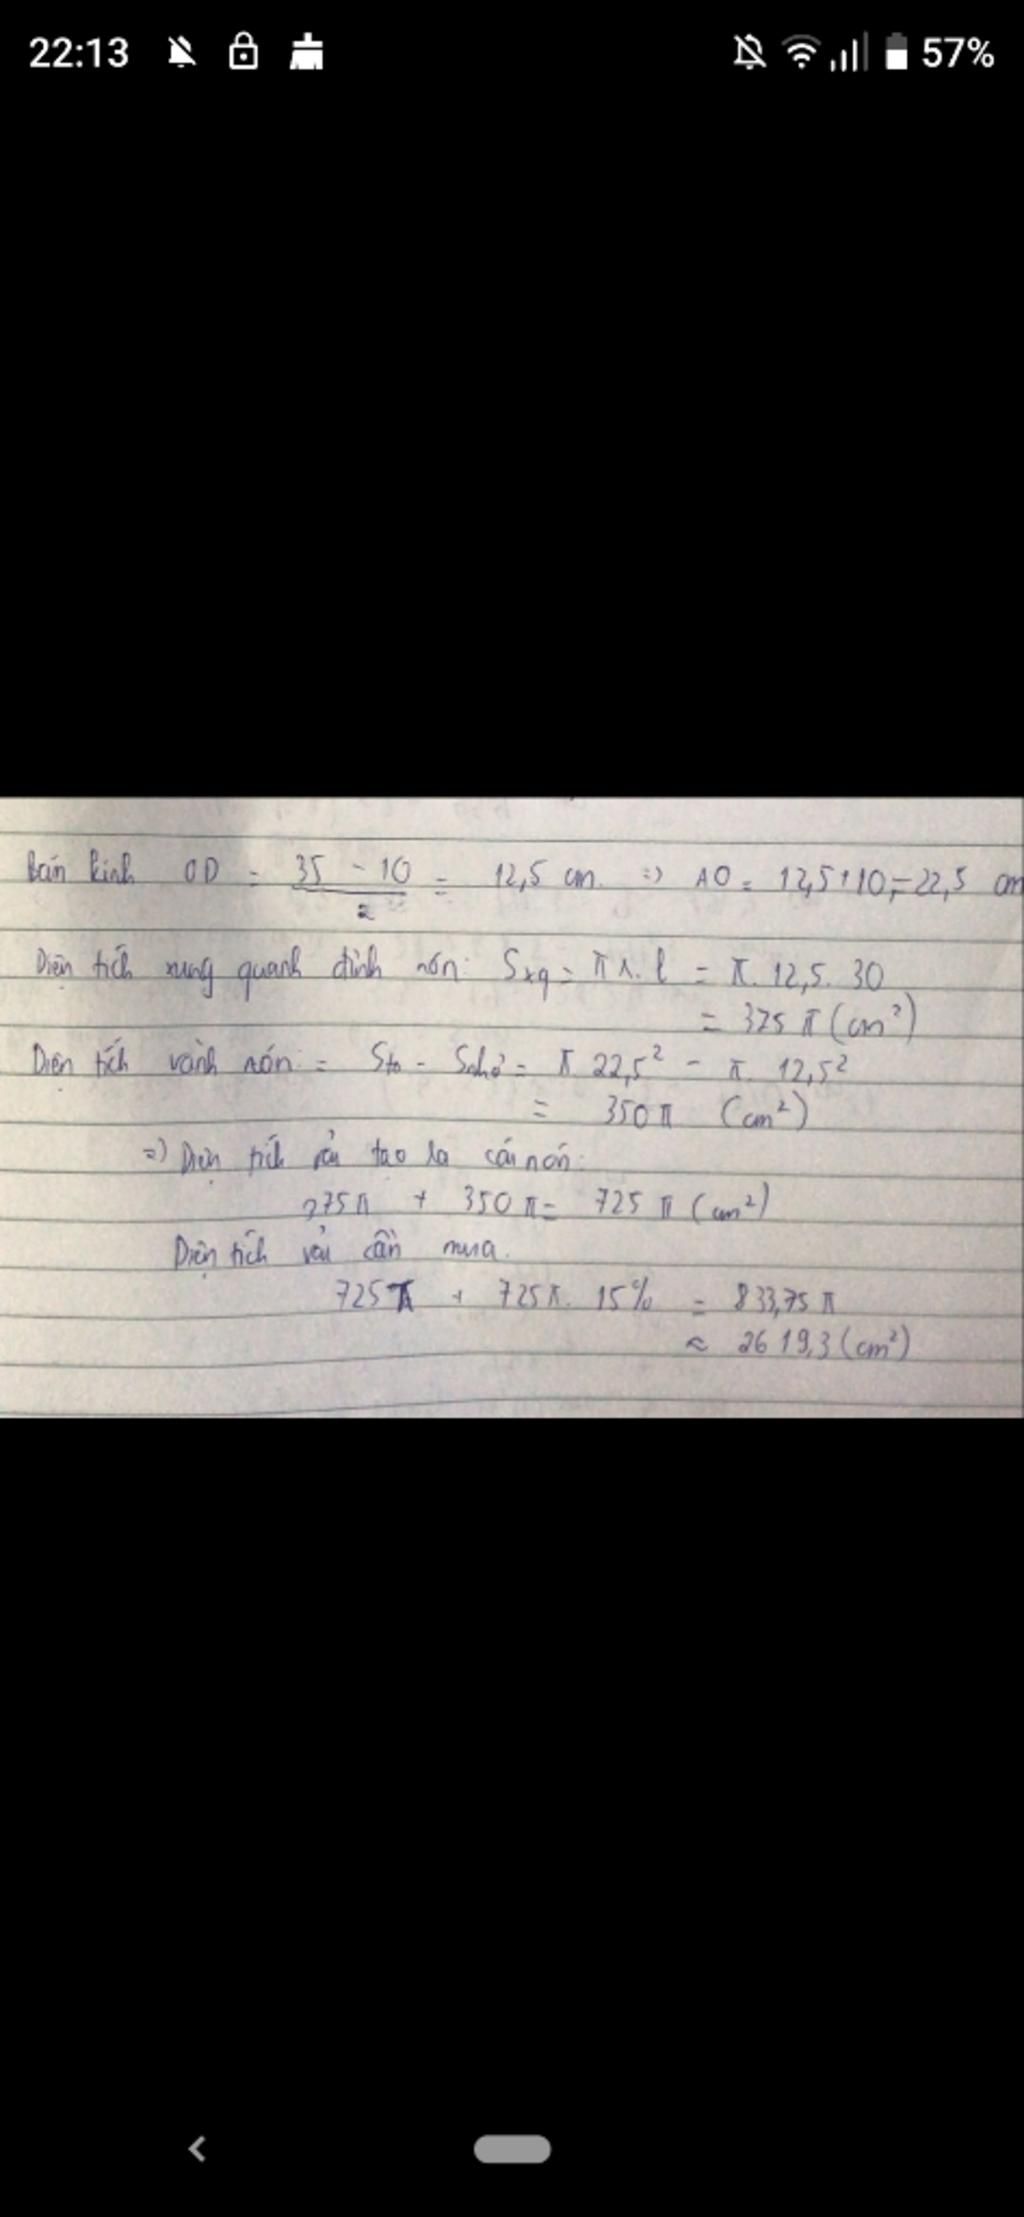 22:13
57%
Bán kính OD = 35 - 10 / 2 = 12,5 cm. => AO = 12,5+10=22,5 cm
Diện tích xung quanh đỉnh nón: Sxq = π r. l = π. 12,5. 30
= 375 π (cm²)
Diện tích vành nón: = Sto - Snhỏ = π 22,5² - π. 12,5²
= 350π (cm²)
=) Diện tích vải tạo la cái nón:
375π + 350 π = 725 π (cm²)
Diện tích vải cần mua.
725π + 725π. 15% = 833,75 π
≈ 2619,3 (cm²)